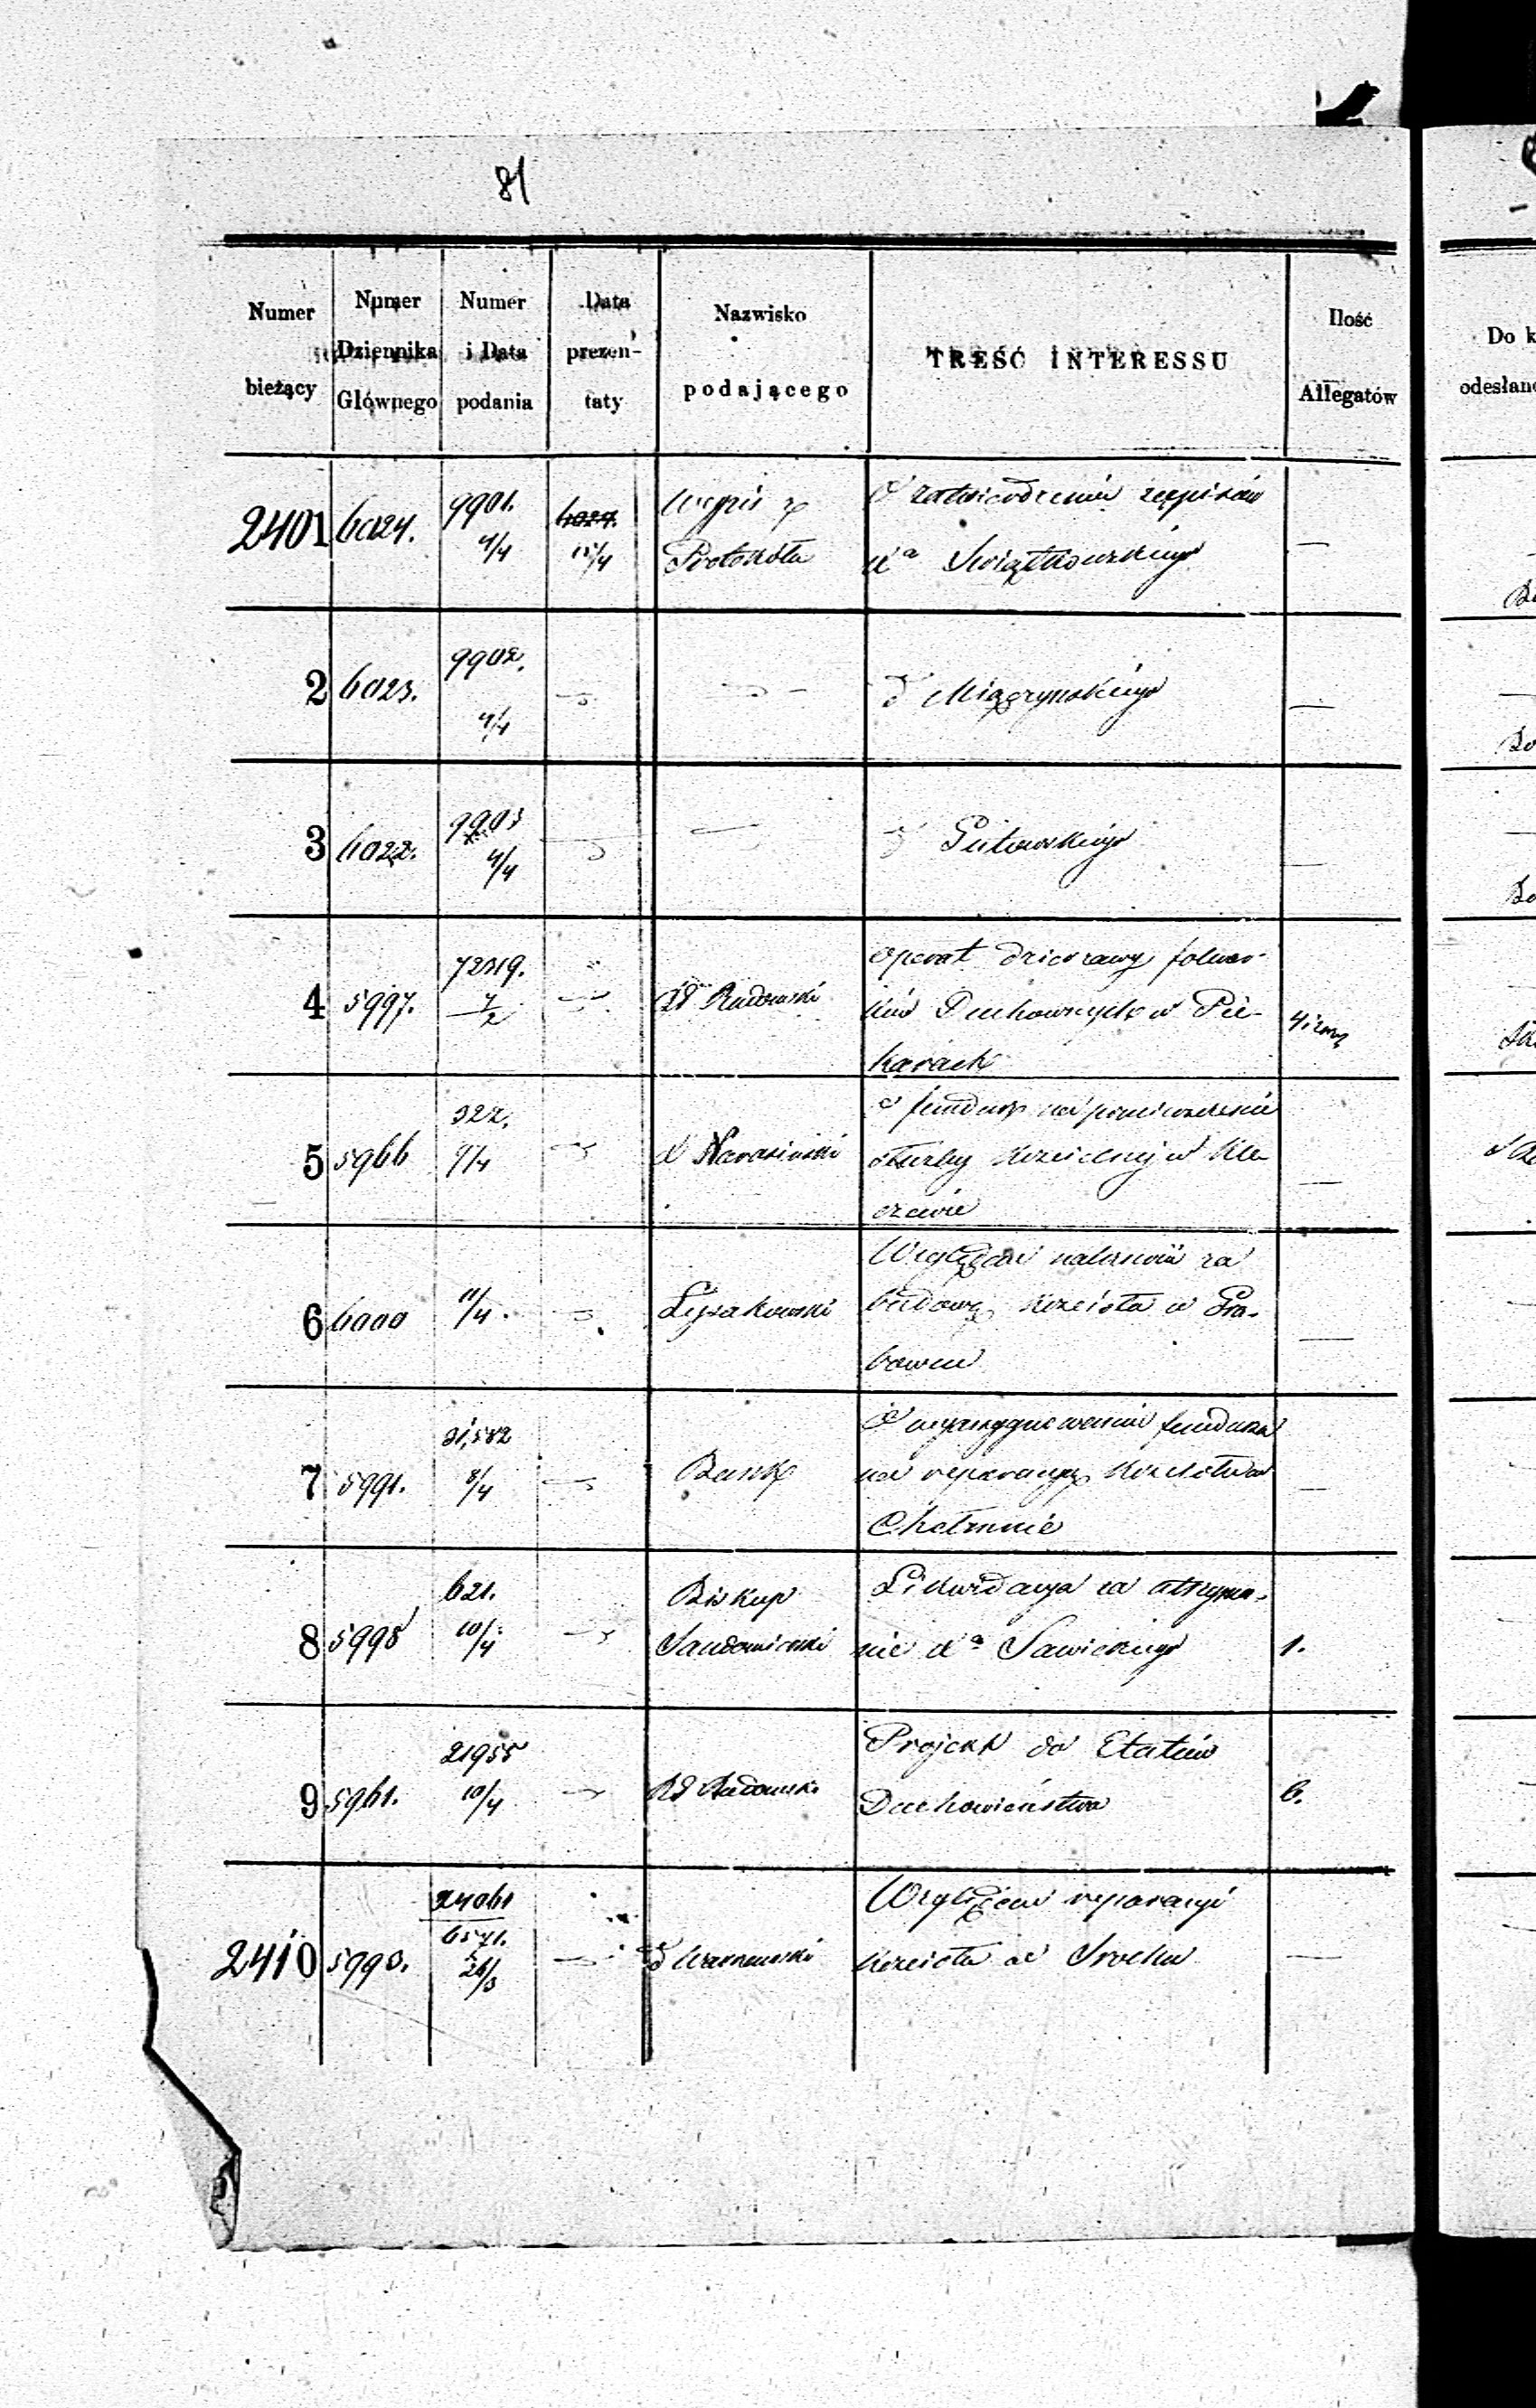 81
Numer bieżący
Numer Dziennika Głównego
Numer i Data podania
Data prezentaty
Nazwisko podającego
TREŚĆ INTERESSU
Ilość Allegatów
Do k
odesłano
2401 6024. 9901. 4/4 6024. 15/4 Wypis z Protokółu
O zatwierdzeniu zapisów
Xa Swiątkowskiego —
2 6023. 9902. 4/4
d Miączyńskiego —
3 6022. 9903 4/4
Gutowskiego —
4 5997. 7/2 Rd Radomski
Operat dzierzawy folwar-
ków Duchownych w Pie-
karach
5 5966 322. 9/4 X
o fundusz na
służby kościelnej w Kle
czewie —
6 6000 11/4. Łysakowski
Względem należności za
budowę kościoła w Gra-
bowcu —
7 5991. 31,582 8/4 Bank
O wyassygnowanie funduszu
na reparacyę kościoła w
Chełmnie —
8 5998 621. 10/4 Biskup Sandomierski
Likwidacya za utrzyma-
nie Xa Sawickiego 1.
9 5961. 21955 10/4 Rd Radomski
Projekt do Etatów
Duchowieństwa 6.
2410 5993. 24061 6571. 26/3 d Warszawski
Względem reparacyi
kościoła w Srocku —